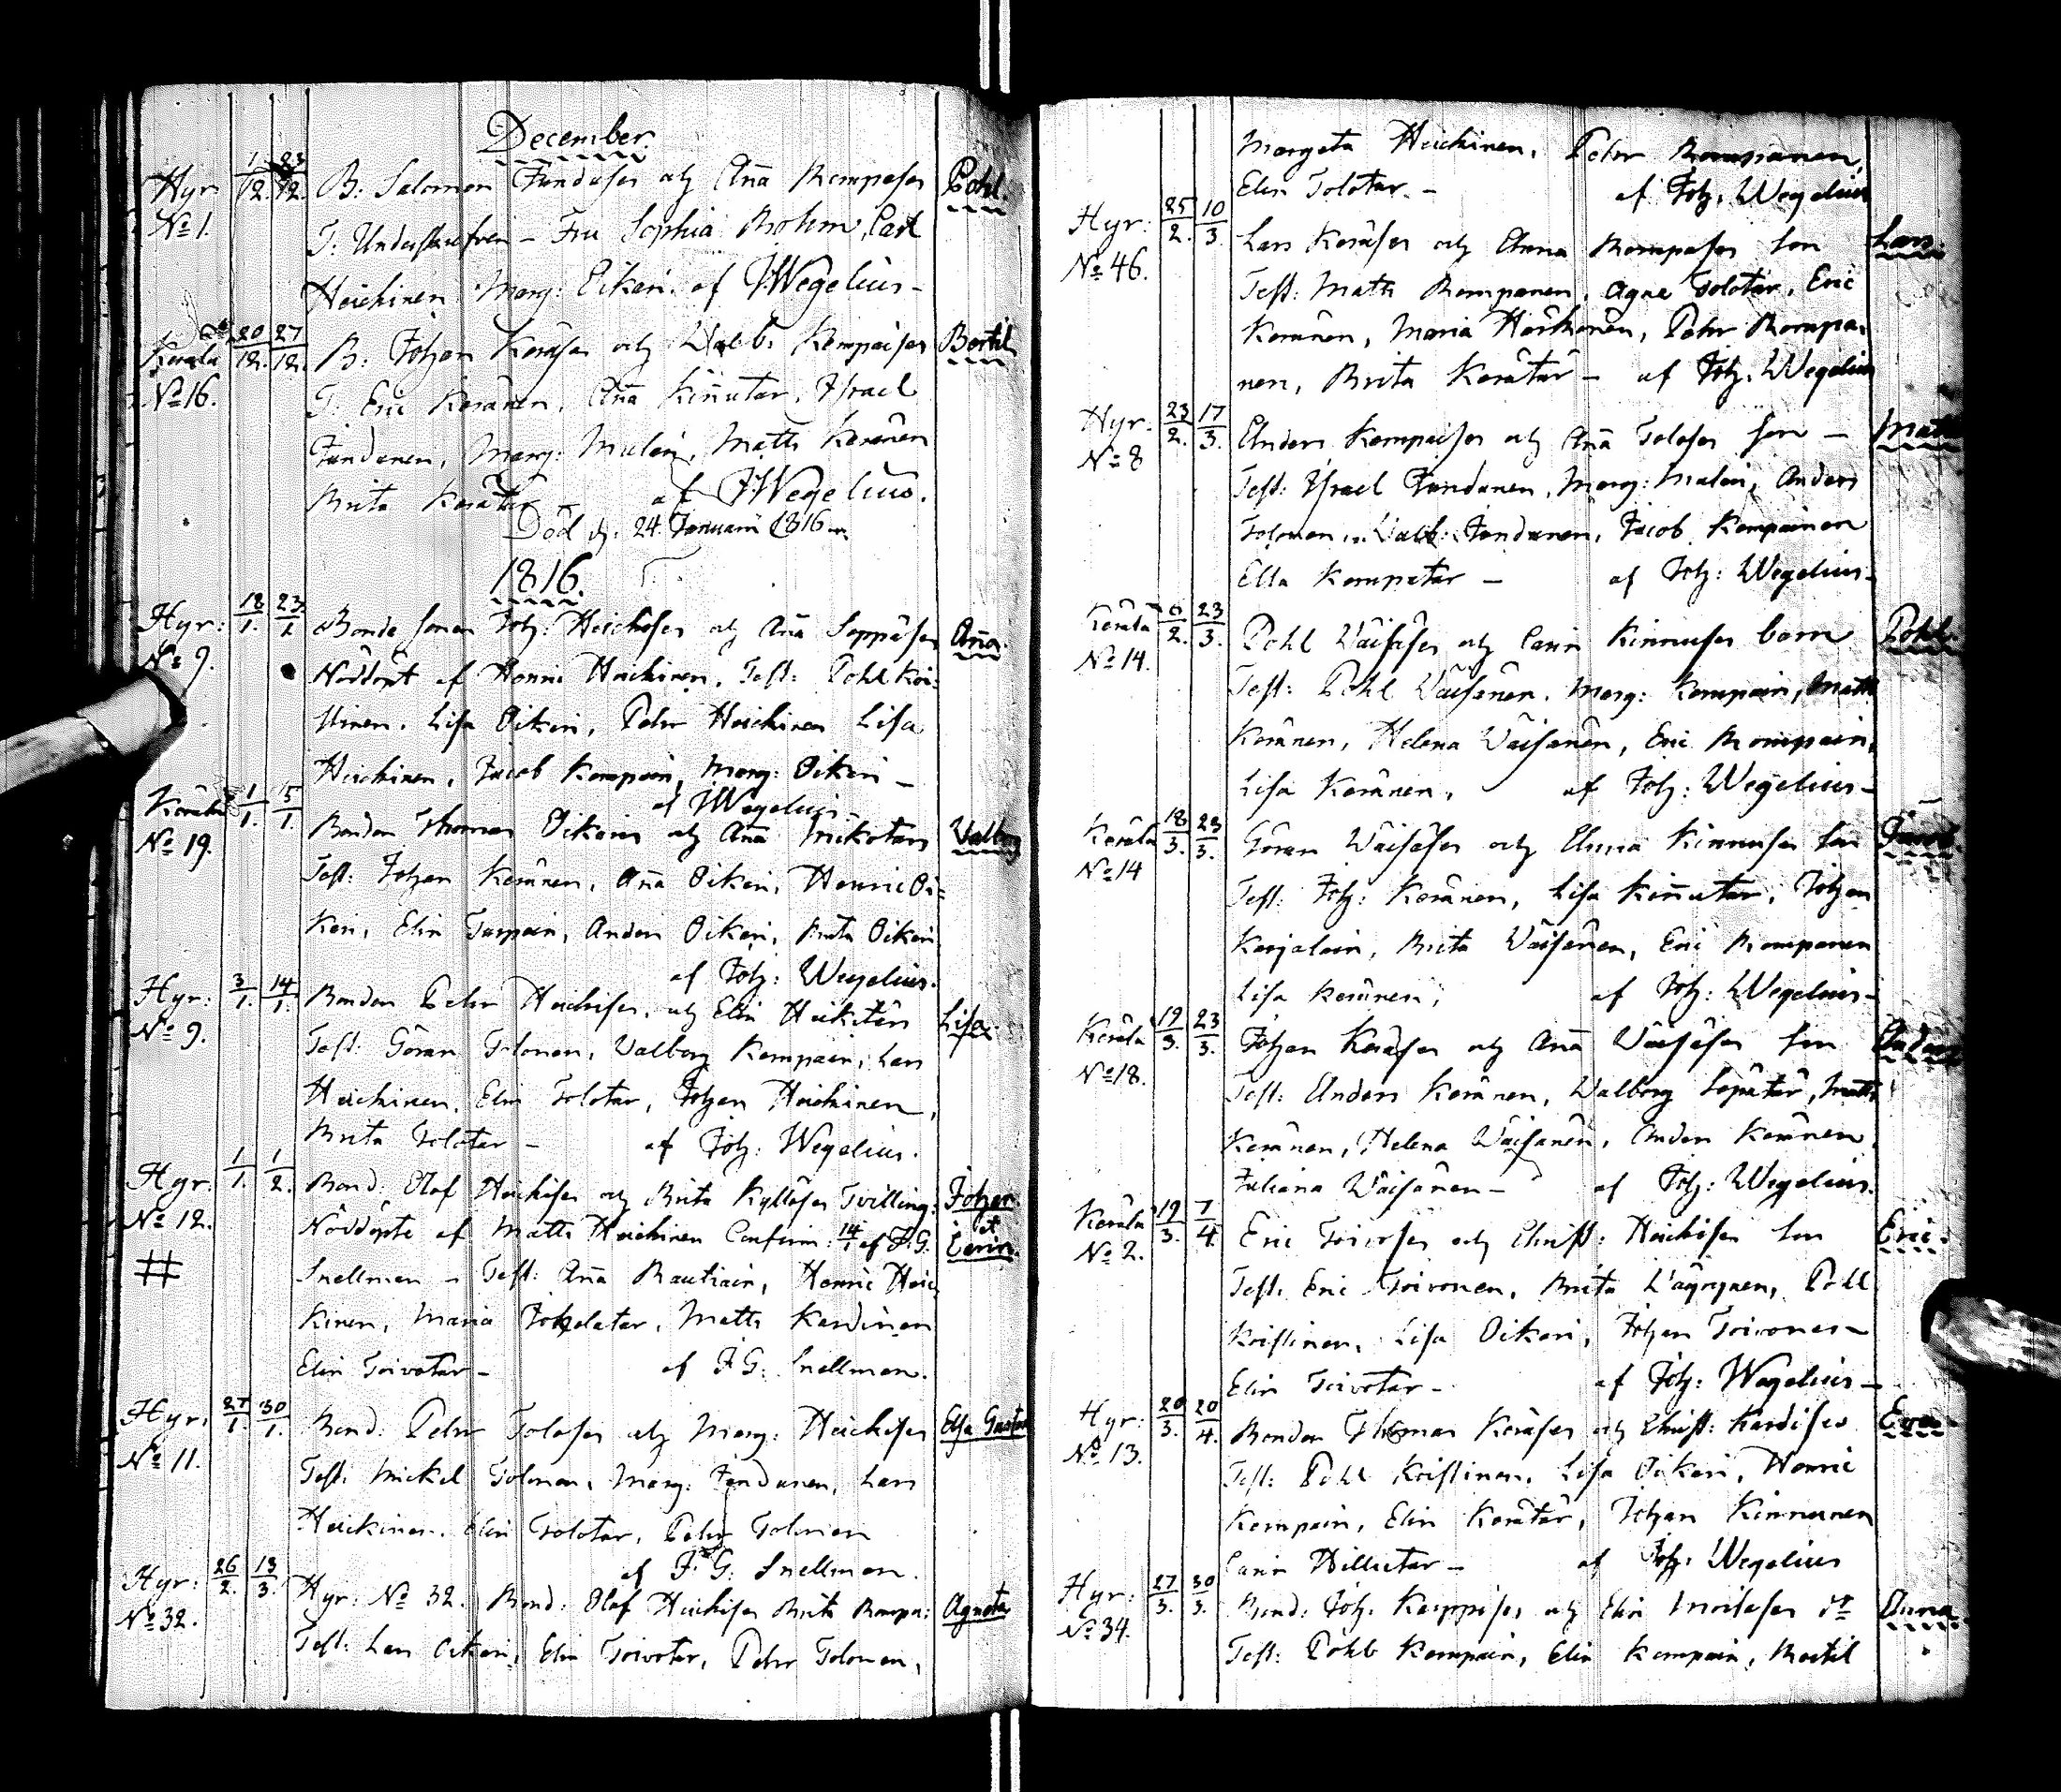 December.
Hyr. 1/12. 23/12. B: Salomon Jundaser och Aña Rompaser Pohl.
No 1. T: Underskrefven - Fru Sophia Bohm, Carl
Heichinen Marg: Oikari. af JWegelius -
Kerala 20/12. 27/12. B: Johan Keräser och Walb: Kempaiser Bertil
No 16. T: Eric Keränen, Aña Kiñutar, Israel
Jundanen, Marg: Mulari, Matts Keränen
Brita Kerätär - af JWegelius.
Död d. 24. Januarii 1816
1816.
Hyr: 18/1. 23/1. Bonde sonen Joh: Heicheser och Aña Seppäser Aña.
No 9. Nöddöpt af Henric Heichinen. Test: Pohl Kri-
stinen. Lisa Oikari, Pehr Heichinen Lisa
Heichinen, Jacob Kempain, Marg: Oikari -
af JWegelius
Kerala 1/1. 5/1. Bonden Thomas Oikaris och Aña Mikotars Valborg
No 19. Test: Johan Keränen, Aña Oikari, Henric Oi-
kari, Elin Turpein, Anders Oikari, Brita Oikari
af Joh: Wegelius.
Hyr: 3/1. 14/1. Bonden Pehr Heichiser, och Elin Heikitärs Lisa.
No 9. Test: Göran Tolonen, Valborg Kempain, Lars
Heichinen, Elin Tolotar, Johan Heichinen,
Brita Tolotar - af Joh: Wegelius.
Hyr: 1/1. 1/2. Bond: Olof Heichiser och Brita Kylläser Tvilling: Johan
No 12. Nöddöpte af Matts Heichinen Confirm: 14/1 af J.G. et Carin.
# Snellman - Test: Aña Rautiain, Henric Heic
kinen, Maria Jokelatar, Matts Kardinen
Elin Toivotar - af J.G: Snellman.
Hyr: 27/1. 30/1. Bond: Pehr Tolaser och Marg: Heichiser Elsa Gustava
No 11. Test: Mickel Tolonen, Marg: Jundanen, Lars
Heickinen. Elin Tolotar, Pehr Tolonen
af J.G: Snellman.
Hyr: 26/2. 13/3. Hyr: No 32. Bond: Olof Heichiser Brita Rompa: Agneta
No 32. Test: Lars Oikari, Elin Toivotar, Pehr Tolonen,
Margeta Heichinen, Pehr Rompanen,
Elin Tolotar - af Joh: Wegelius
Hyr: 25/2. 10/3. Lars Keräser och Anna Rompaser son Lars.
No 46. Test: Matts Rompanen, Agne Tolotar, Eric
Keränen, Maria Härkönen, Pehr Rompa-
nen, Brita Kerätär - af Joh: Wegelius
Hyr: 23/2. 17/3. Anders Kempaiser och Aña Tolaser son - Matts
No 8 Test: Israel Jundanen, Marg: Mulari, Anders
Tolonen, Valb: Jundanen, Jacob Kempainen
Ella Kempatar - af Joh: Wegelius.
Kerala 2. 23/3. Pohl Väisäser och Carin Kinnuser barn Pohl.
No 14. Test: Pohl Väisänen. Marg: Kempain, Matts
Keränen, Helena Väisänen, Eric Rompain,
Lisa Keränen. af Joh: Wegelius -
Kerala 18/3. 23/3. Göran Väisäser och Anna Kinnuser son Jacob.
No 14 Test: Joh: Keränen, Lisa Kiñutar, Johan
Karjalain, Brita Väisänen, Eric Rompanen
Lisa Keränen, af Joh: Wegelius -
Kerala 19/3. 23/3. Johan Keräser och Aña Väisäser son Anders
No 18. Test: Anders Keränen, Walborg Sepätär, Matts
Keränen, Helena Väisänen, Anders Keränen,
Juliana Väisänen - af Joh: Wegelius.
Kerala 19/3. 7/4. Eric Toivoser och Christ: Heichiser son Eric.
No 2. Test: Eric Toivonen, Brita Väyrynen, Pohl
Kristinen, Lisa Oikari, Johan Toivonen -
Elin Toivotar - af Joh: Wegelius -
Hyr: 20/3. 20/4. Bonden Thomas Keräser och Christ: Kardiser Eva.
No 13. Test: Pohl Kristinen, Lisa Oikari, Henric
Kempain, Elin Kerätär, Johan Kinnunen
Carin Hillutar - af Joh: Wegelius
Hyr: 27/3. 30/3. Bond: Joh: Karppiser och Elin Moilaser dr Anna.
No 34. Test: Pohl Kempain, Elin Kempain, Bertil